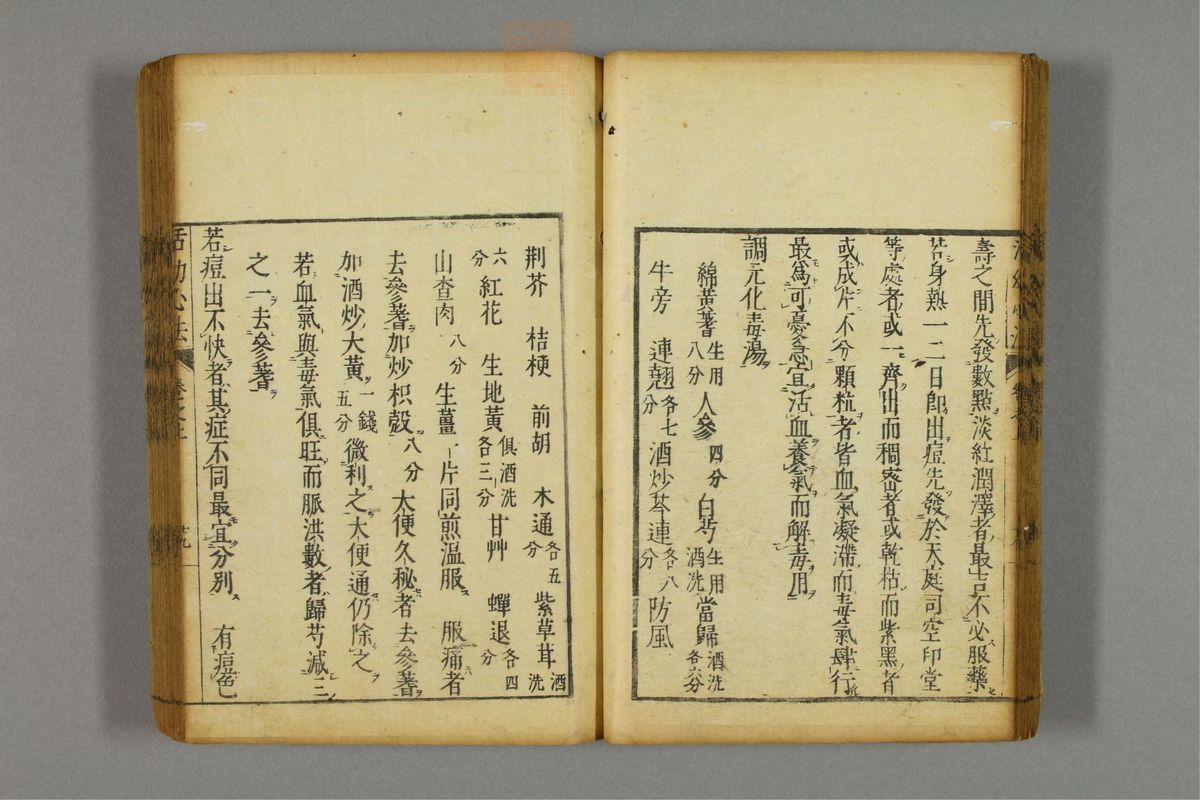 壽之間先發數點淡紅潤澤者最吉不必服藥
若身熱一二日即出痘先發於天庭司空印堂
等處者或一齊出而稠密者或乾枯而紫黑者
或成片不分顆粒者皆血氣凝滯而毒氣肆行
最爲可憂急宜活血養氣而解毒用
調元化毒湯
綿黃蓍生用八分 人參四分 白芍生用酒洗 當歸酒洗各六分
牛旁 連翹各七分 酒炒芩連各八分 防風
荆芥 桔梗 前胡 木通各五分 紫草茸酒洗
六分 紅花 生地黃俱酒洗各三分 甘艸 蟬退各四分
山查肉八分 生薑一片同煎溫服 服痛者
去參蓍加炒枳殼八分 大便久秘者去參蓍
加酒炒大黃一錢五分 微利之大便通仍除之
若血氣與毒氣俱旺而脈洪數者歸芍減三
之一去參蓍
若痘出不快者其症不同最宜分別 有痘色
活幼心法